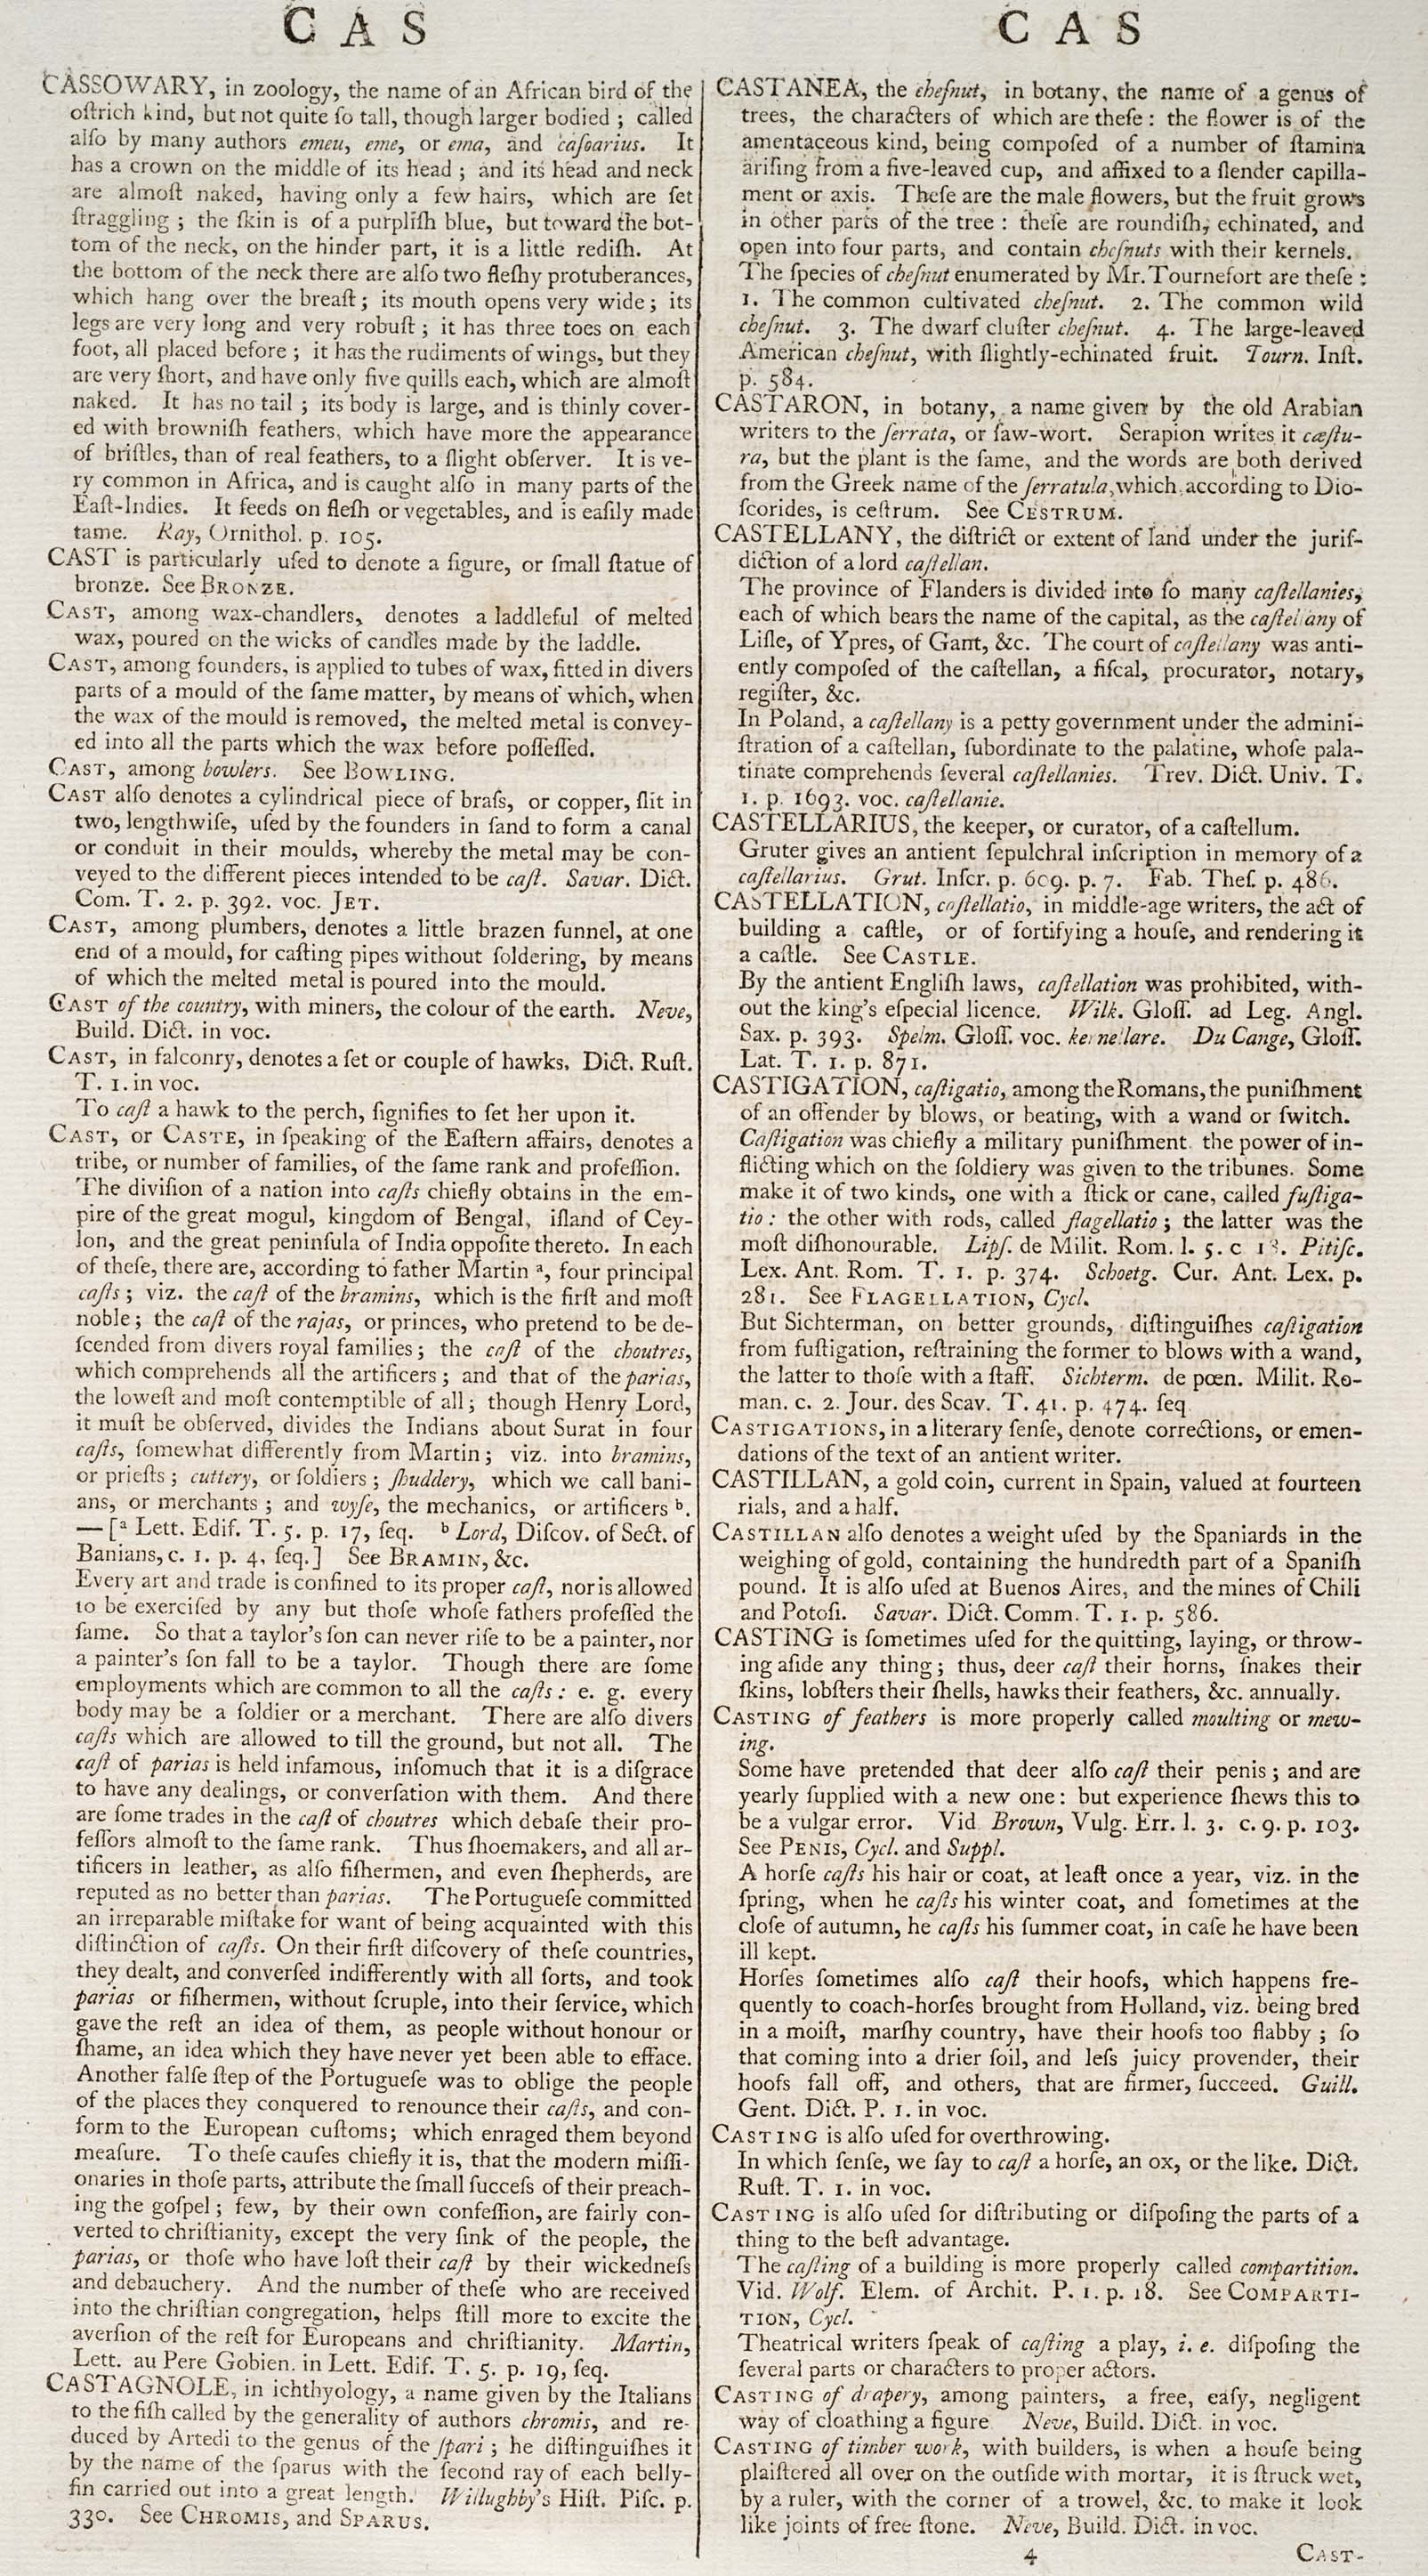 C A S
CASSOWARY, in zoology, the name of an African bird of the
oſtrich kind, but not quite ſo tall, though larger bodied ; called
alſo by many authors emeu, eme, or ema, and caſoarius. It
has a crown on the middle of its head ; and its head and neck
are almoſt naked, having only a few hairs, which are ſet
ſtraggling ; the ſkin is of a purpliſh blue, but toward the bot-
tom of the neck, on the hinder part, it is a little rediſh. At
the bottom of the neck there are alſo two fleſhy protuberances,
which hang over the breaſt; its mouth opens very wide ; its
legs are very long and very robuſt ; it has three toes on each
foot, all placed before ; it has the rudiments of wings, but they
are very ſhort, and have only five quills each, which are almoſt
naked. It has no tail ; its body is large, and is thinly cover-
ed with browniſh feathers, which have more the appearance
of briſtles, than of real feathers, to a ſlight obſerver. It is ve-
ry common in Africa, and is caught alſo in many parts of the
Eaſt-Indies. It feeds on fleſh or vegetables, and is eaſily made
tame. Ray, Ornithol. p. 105.
CAST is particularly uſed to denote a figure, or ſmall ſtatue of
bronze. See BRONZE.
CAST, among wax-chandlers, denotes a laddleful of melted
wax, poured on the wicks of candles made by the laddle.
CAST, among founders, is applied to tubes of wax, fitted in divers
parts of a mould of the ſame matter, by means of which, when
the wax of the mould is removed, the melted metal is convey-
ed into all the parts which the wax before poſſeſſed.
CAST, among bowlers. See BOWLING.
CAST alſo denotes a cylindrical piece of braſs, or copper, ſlit in
two, lengthwiſe, uſed by the founders in ſand to form a canal
or conduit in their moulds, whereby the metal may be con-
veyed to the different pieces intended to be caſt. Savar. Dict.
Com. T. 2. p. 392. voc. JET.
CAST, among plumbers, denotes a little brazen funnel, at one
end of a mould, for caſting pipes without ſoldering, by means
of which the melted metal is poured into the mould.
CAST of the country, with miners, the colour of the earth. Neve,
Build. Dict. in voc.
CAST, in falconry, denotes a ſet or couple of hawks. Dict. Ruſt.
T. 1. in voc.
To caſt a hawk to the perch, ſignifies to ſet her upon it.
CAST, or CASTE, in ſpeaking of the Eaſtern affairs, denotes a
tribe, or number of families, of the ſame rank and profeſſion.
The diviſion of a nation into caſts chiefly obtains in the em-
pire of the great mogul, kingdom of Bengal, iſland of Cey-
lon, and the great peninſula of India oppoſite thereto. In each
of theſe, there are, according to father Martin ᵃ, four principal
caſts ; viz. the caſt of the bramins, which is the firſt and moſt
noble ; the caſt of the rajas, or princes, who pretend to be de-
ſcended from divers royal families ; the caſt of the choutres,
which comprehends all the artificers ; and that of the parias,
the loweſt and moſt contemptible of all ; though Henry Lord,
it muſt be obſerved, divides the Indians about Surat in four
caſts, ſomewhat differently from Martin ; viz. into bramins,
or prieſts ; cuttery, or ſoldiers ; ſhuddery, which we call bani-
ans, or merchants ; and wyſe, the mechanics, or artificers ᵇ.
— [ᵃ Lett. Edif. T. 5. p. 17, ſeq. ᵇ Lord, Diſcov. of Sect. of
Banians, c. 1. p. 4, ſeq.] See BRAMIN, &c.
Every art and trade is confined to its proper caſt, nor is allowed
to be exerciſed by any but thoſe whoſe fathers profeſſed the
ſame. So that a taylor's ſon can never riſe to be a painter, nor
a painter's ſon fall to be a taylor. Though there are ſome
employments which are common to all the caſts : e. g. every
body may be a ſoldier or a merchant. There are alſo divers
caſts which are allowed to till the ground, but not all. The
caſt of parias is held infamous, inſomuch that it is a diſgrace
to have any dealings, or converſation with them. And there
are ſome trades in the caſt of choutres which debaſe their pro-
feſſors almoſt to the ſame rank. Thus ſhoemakers, and all ar-
tificers in leather, as alſo fiſhermen, and even ſhepherds, are
reputed as no better than parias. The Portugueſe committed
an irreparable miſtake for want of being acquainted with this
diſtinction of caſts. On their firſt diſcovery of theſe countries,
they dealt, and converſed indifferently with all ſorts, and took
parias or fiſhermen, without ſcruple, into their ſervice, which
gave the reſt an idea of them, as people without honour or
ſhame, an idea which they have never yet been able to efface.
Another falſe ſtep of the Portugueſe was to oblige the people
of the places they conquered to renounce their caſts, and con-
form to the European cuſtoms; which enraged them beyond
meaſure. To theſe cauſes chiefly it is, that the modern miſſi-
onaries in thoſe parts, attribute the ſmall ſucceſs of their preach-
ing the goſpel ; few, by their own confeſſion, are fairly con-
verted to chriſtianity, except the very ſink of the people, the
parias, or thoſe who have loſt their caſt by their wickedneſs
and debauchery. And the number of theſe who are received
into the chriſtian congregation, helps ſtill more to excite the
averſion of the reſt for Europeans and chriſtianity. Martin,
Lett. au Pere Gobien. in Lett. Edif. T. 5. p. 19, ſeq.
CASTAGNOLE, in ichthyology, a name given by the Italians
to the fiſh called by the generality of authors chromis, and re-
duced by Artedi to the genus of the ſpari ; he diſtinguiſhes it
by the name of the ſparus with the ſecond ray of each belly-
fin carried out into a great length. Willughby's Hiſt. Piſc. p.
330. See CHROMIS, and SPARUS.
C A S
CASTANEA, the cheſnut, in botany, the name of a genus of
trees, the characters of which are theſe : the flower is of the
amentaceous kind, being compoſed of a number of ſtamina
ariſing from a five-leaved cup, and affixed to a ſlender capilla-
ment or axis. Theſe are the male flowers, but the fruit grows
in other parts of the tree : theſe are roundiſh, echinated, and
open into four parts, and contain cheſnuts with their kernels.
The ſpecies of cheſnut enumerated by Mr. Tournefort are theſe :
1. The common cultivated cheſnut. 2. The common wild
cheſnut. 3. The dwarf cluſter cheſnut. 4. The large-leaved
American cheſnut, with ſlightly-echinated fruit. Tourn. Inſt.
p. 584.
CASTARON, in botany, a name given by the old Arabian
writers to the ſerrata, or ſaw-wort. Serapion writes it cæſtu-
ra, but the plant is the ſame, and the words are both derived
from the Greek name of the ſerratula, which, according to Dio-
ſcorides, is ceſtrum. See CESTRUM.
CASTELLANY, the diſtrict or extent of land under the juriſ-
diction of a lord caſtellan.
The province of Flanders is divided into ſo many caſtellanies,
each of which bears the name of the capital, as the caſtellany of
Liſle, of Ypres, of Gant, &c. The court of caſtellany was anti-
ently compoſed of the caſtellan, a fiſcal, procurator, notary,
regiſter, &c.
In Poland, a caſtellany is a petty government under the admini-
ſtration of a caſtellan, ſubordinate to the palatine, whoſe pala-
tinate comprehends ſeveral caſtellanies. Trev. Dict. Univ. T.
1. p. 1693. voc. caſtellanie.
CASTELLARIUS, the keeper, or curator, of a caſtellum.
Gruter gives an antient ſepulchral inſcription in memory of a
caſtellarius. Grut. Inſcr. p. 609. p. 7. Fab. Theſ. p. 486.
CASTELLATION, caſtellatio, in middle-age writers, the act of
building a caſtle, or of fortifying a houſe, and rendering it
a caſtle. See CASTLE.
By the antient Engliſh laws, caſtellation was prohibited, with-
out the king's eſpecial licence. Wilk. Gloſſ. ad Leg. Angl.
Sax. p. 393. Spelm. Gloſſ. voc. kernellare. Du Cange, Gloſſ.
Lat. T. 1. p. 871.
CASTIGATION, caſtigatio, among the Romans, the puniſhment
of an offender by blows, or beating, with a wand or ſwitch.
Caſtigation was chiefly a military puniſhment the power of in-
flicting which on the ſoldiery was given to the tribunes. Some
make it of two kinds, one with a ſtick or cane, called fuſtiga-
tio : the other with rods, called flagellatio ; the latter was the
moſt diſhonourable. Lipſ. de Milit. Rom. l. 5. c 18. Pitiſc.
Lex. Ant. Rom. T. 1. p. 374. Schoetg. Cur. Ant. Lex. p.
281. See FLAGELLATION, Cycl.
But Sichterman, on better grounds, diſtinguiſhes caſtigation
from fuſtigation, reſtraining the former to blows with a wand,
the latter to thoſe with a ſtaff. Sichterm. de pœn. Milit. Ro-
man. c. 2. Jour. des Scav. T. 41. p. 474. ſeq
CASTIGATIONS, in a literary ſenſe, denote corrections, or emen-
dations of the text of an antient writer.
CASTILLAN, a gold coin, current in Spain, valued at fourteen
rials, and a half.
CASTILLAN alſo denotes a weight uſed by the Spaniards in the
weighing of gold, containing the hundredth part of a Spaniſh
pound. It is alſo uſed at Buenos Aires, and the mines of Chili
and Potoſi. Savar. Dict. Comm. T. 1. p. 586.
CASTING is ſometimes uſed for the quitting, laying, or throw-
ing aſide any thing ; thus, deer caſt their horns, ſnakes their
ſkins, lobſters their ſhells, hawks their feathers, &c. annually.
CASTING of feathers is more properly called moulting or mew-
ing.
Some have pretended that deer alſo caſt their penis ; and are
yearly ſupplied with a new one : but experience ſhews this to
be a vulgar error. Vid Brown, Vulg. Err. l. 3. c. 9. p. 103.
See PENIS, Cycl. and Suppl.
A horſe caſts his hair or coat, at leaſt once a year, viz. in the
ſpring, when he caſts his winter coat, and ſometimes at the
cloſe of autumn, he caſts his ſummer coat, in caſe he have been
ill kept.
Horſes ſometimes alſo caſt their hoofs, which happens fre-
quently to coach-horſes brought from Holland, viz. being bred
in a moiſt, marſhy country, have their hoofs too flabby ; ſo
that coming into a drier ſoil, and leſs juicy provender, their
hoofs fall off, and others, that are firmer, ſucceed. Guill.
Gent. Dict. P. 1. in voc.
CASTING is alſo uſed for overthrowing.
In which ſenſe, we ſay to caſt a horſe, an ox, or the like. Dict.
Ruſt. T. 1. in voc.
CASTING is alſo uſed for diſtributing or diſpoſing the parts of a
thing to the beſt advantage.
The caſting of a building is more properly called compartition.
Vid. Wolf. Elem. of Archit. P. 1. p. 18. See COMPARTI-
TION, Cycl.
Theatrical writers ſpeak of caſting a play, i. e. diſpoſing the
ſeveral parts or characters to proper actors.
CASTING of drapery, among painters, a free, eaſy, negligent
way of cloathing a figure Neve, Build. Dict. in voc.
CASTING of timber work, with builders, is when a houſe being
plaiſtered all over on the outſide with mortar, it is ſtruck wet,
by a ruler, with the corner of a trowel, &c. to make it look
like joints of free ſtone. Neve, Build. Dict. in voc.
4 CAST-